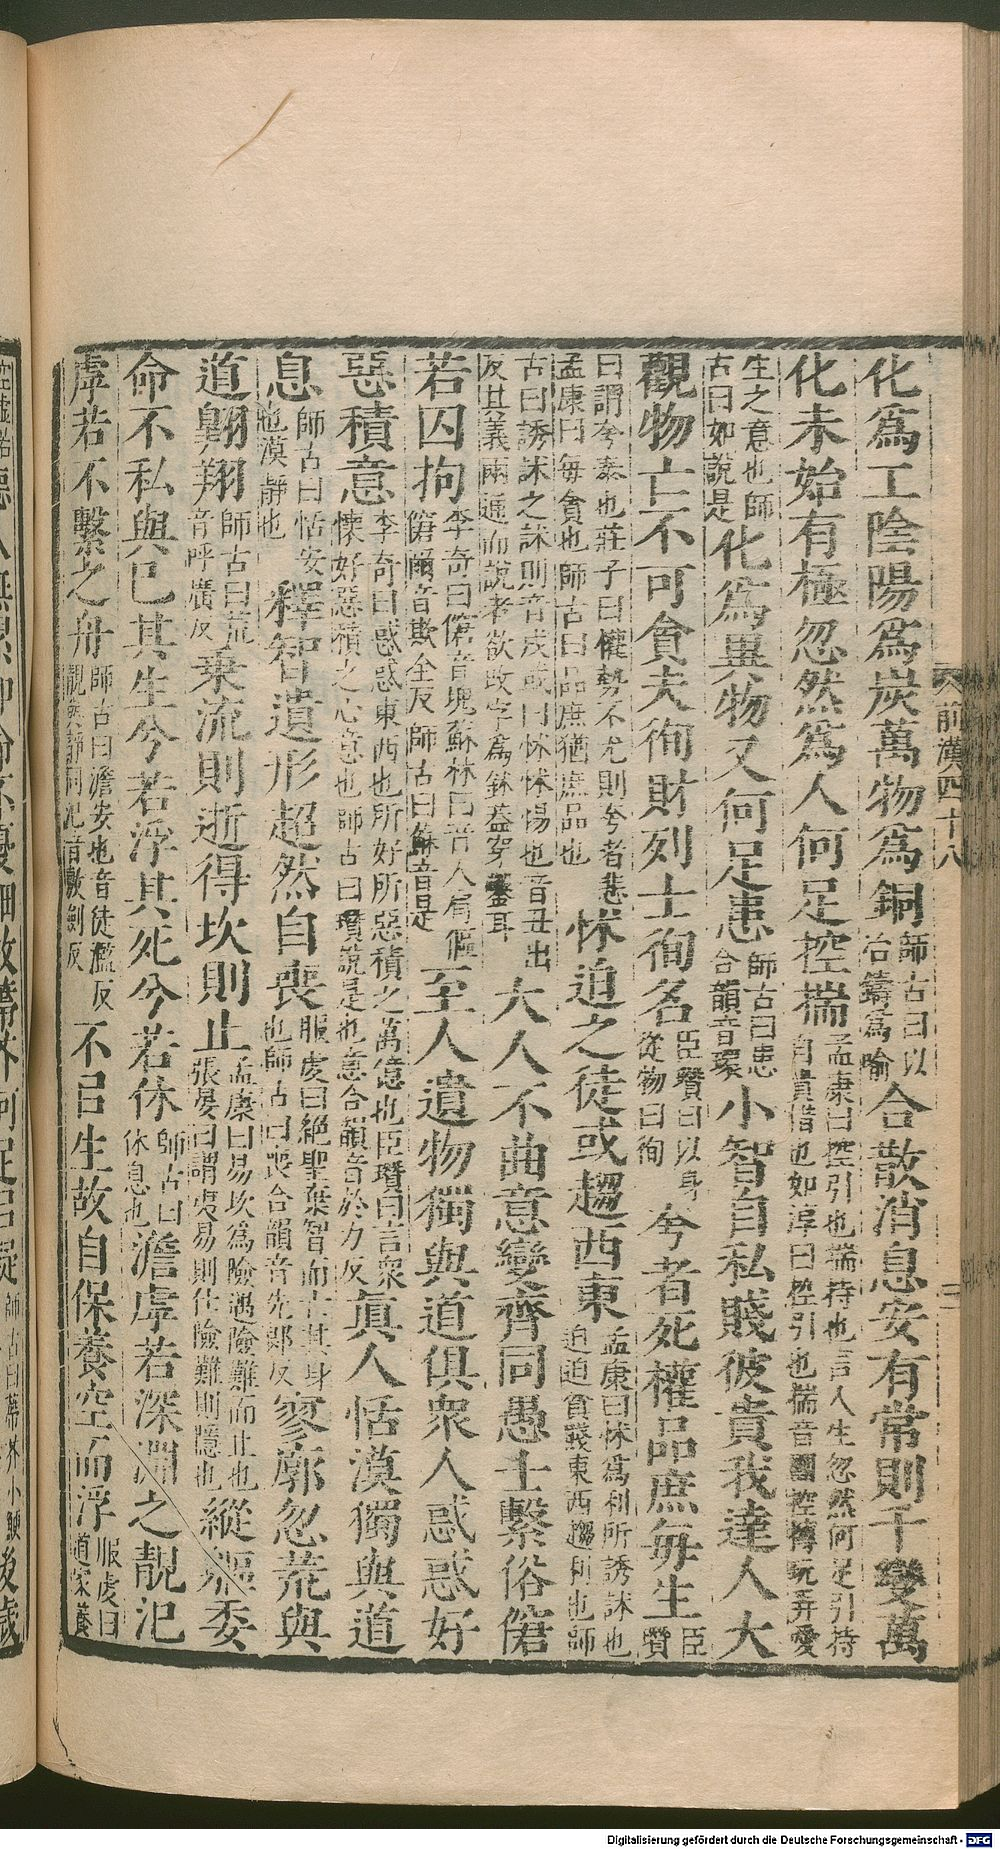 化爲工陰陽爲炭萬物爲銅師古曰以冶鑄爲喻合散消息安有常則千變萬
化未始有極忽然爲人何足控揣孟康曰控引也揣持也言人生忽然何足引持自貴惜也如淳曰控引也揣音團控摶玩弄愛
生之意也師古曰如說是化爲異物又何足患師古曰患合韻音環小智自私賤彼貴我達人大
觀物亡不可貪夫徇財列士徇名臣瓚曰以身從物曰徇夸者死權品庶每生臣瓚
曰謂夸泰也莊子曰權勢不尤則夸者悲孟康曰每貪也師古曰品庶猶庶品也怵迫之徒或趨西東孟康曰怵爲利所誘訹也迫迫貧賤東西趨利也師
古曰誘訹之訹則音戌或曰怵怵惕也音丑出反其義兩通而說者欲改字爲鉥蓋穿鑿耳大人不曲意變齊同愚士繫俗窘
若囚拘李奇曰窘音塊蘇林曰音人肩傴窘爾音欺全反師古曰蘇音是至人遺物獨與道俱衆人惑惑好
惡積意李奇曰惑惑東西也所好所惡積之萬億也臣瓚曰言衆懷好惡積之心意也師古曰瓚說是也意合韻音於力反眞人恬漠獨與道
息師古曰恬安也漠靜也釋智遺形超然自喪服虔曰絕聖棄智而亡其身也師古曰喪合韻音先郎反寥廓忽荒與
道翱翔師古曰荒音呼廣反乘流則逝得坎則止孟康曰易坎爲險遇險難而止也張晏曰謂夷易則仕險難則隱也縱軀委
命不私與已其生兮若浮其死兮若休師古曰休息也澹虖若深淵之靚氾
虖若不繫之舟師古曰澹安也音徒濫反觀與靜同氾音敷劍反不㠯生故自保養空而浮服虔曰道家養
前漢四十八
三
Digitalisierung gefördert durch die Deutsche Forschungsgemeinschaft - DFG